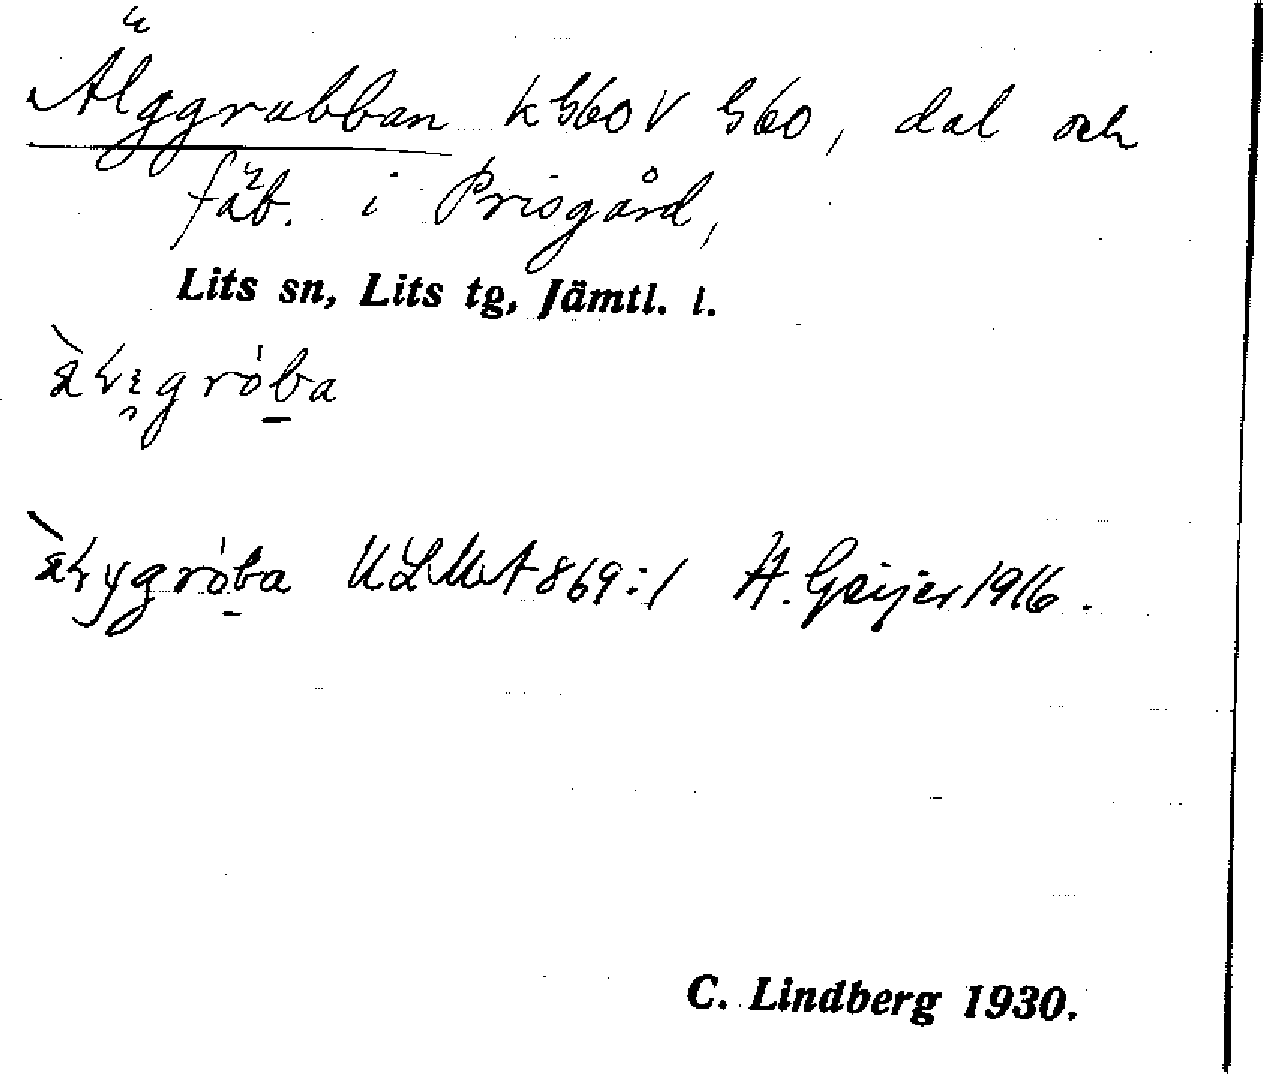 Älggrubban k G60 V G60, dal och
fäb. i Prisgård,
Lits sn, Lits tg, Jämtl. l.
ULMA 869:1 H. Geijer 1916.
C. Lindberg 1930.